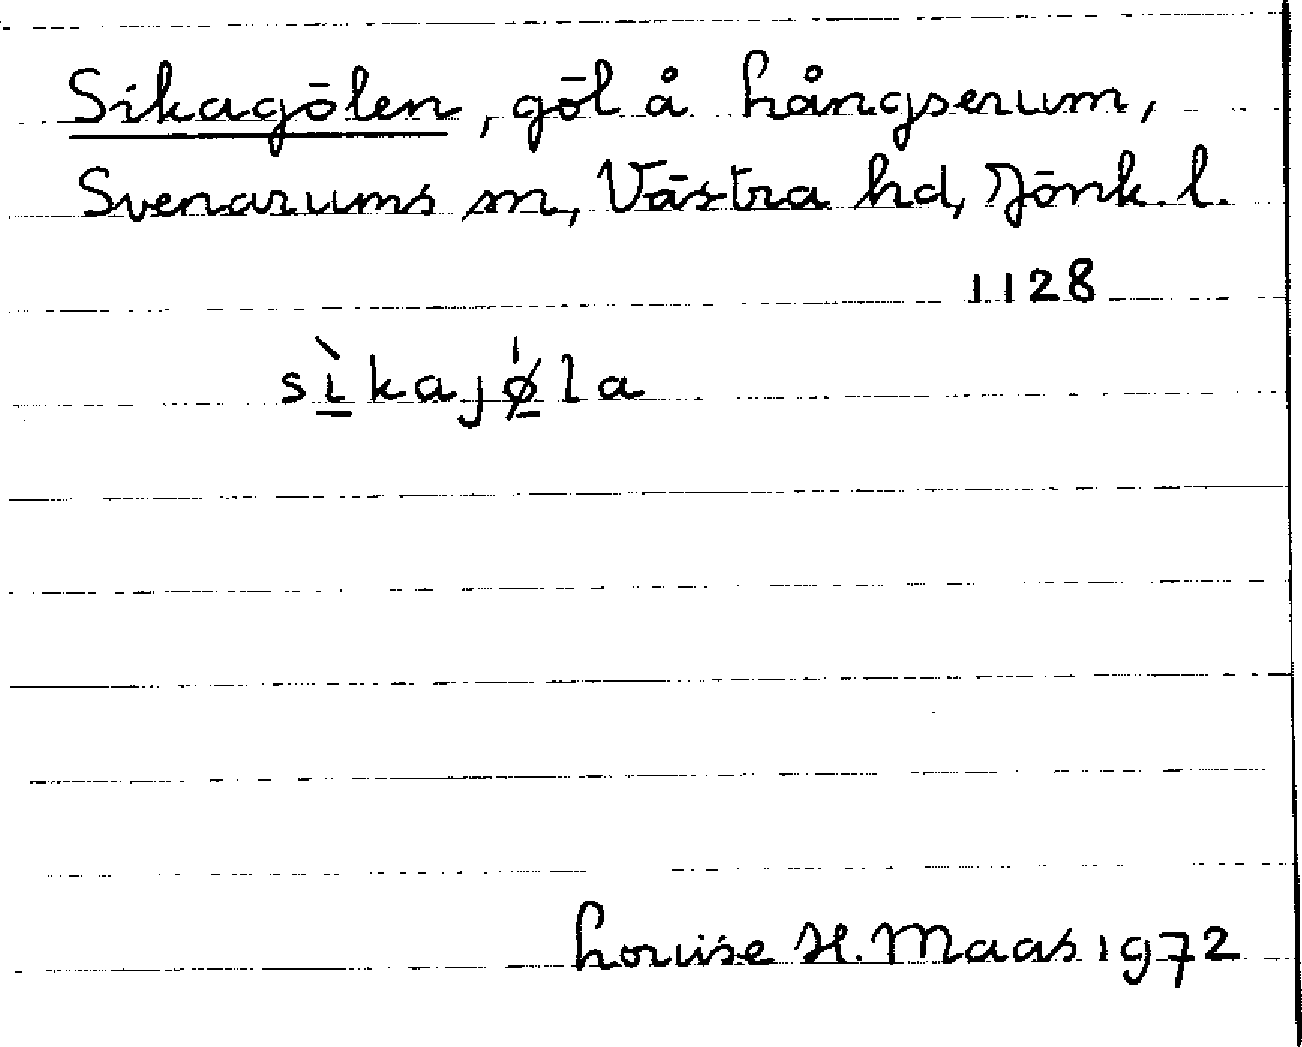 Sikagölen, göl å Långserum,
Svenarums sn, Västra hd, Jönk. l.
1128
sìkajǿla
Louise H. Maas 1972